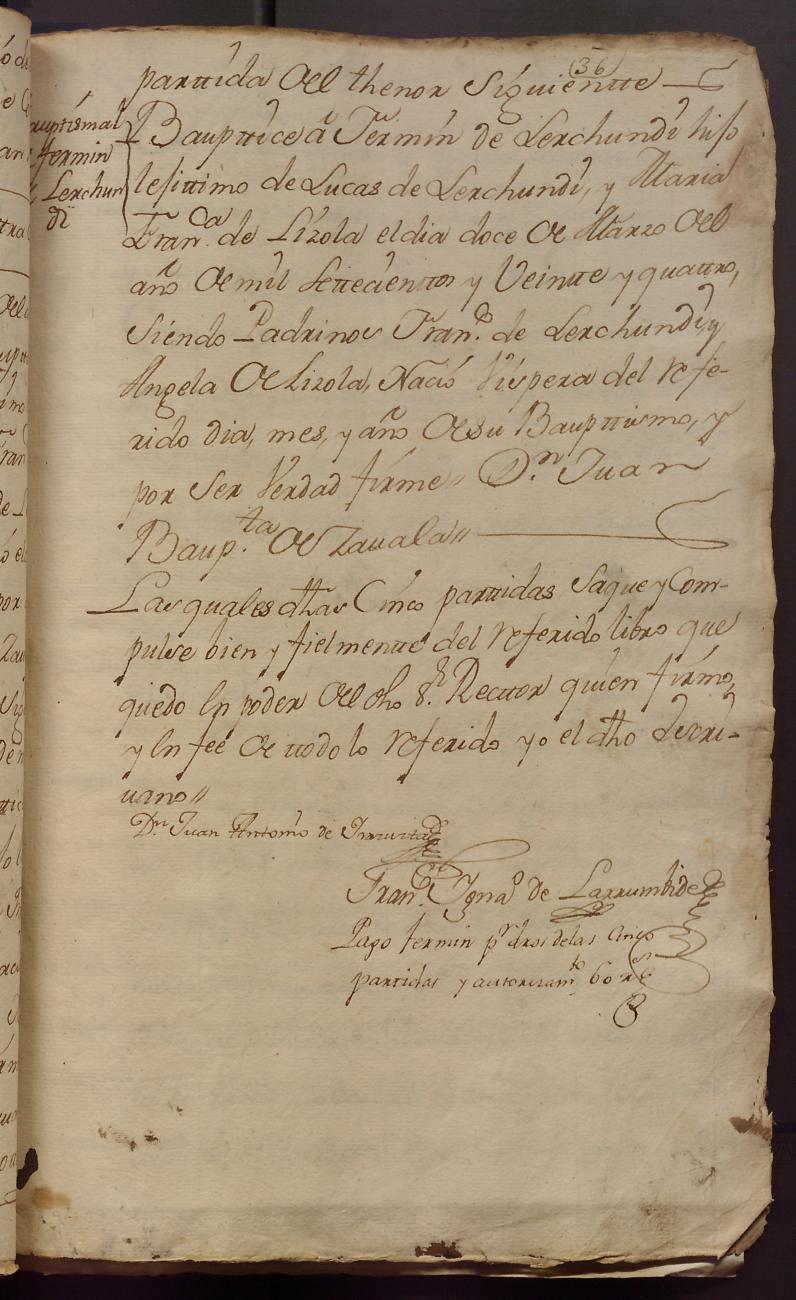 (36)
parttida Del thenor Siguientte
Bauptismal
fermin
Lerchun
di
Baupttice â Fermin de Lerchundi hijo
lejittimo de Lucas de Lerchundi, y Maria
Fran.ca de Lizola el dia doce De Marzo Del
año De mil Settecienttos y Veintte y quattro,
Siendo Padrinos Fran.co de Lerchundi, y
Angela De Lizola, Nació Vispera del refe-
rido dia, mes, y año De su Baupttismo, y
por Ser Verdad firme" D.n Juan
Baup.ta De Zauala"
Las quales dhas Cinco parttidas Saque y Com-
pulse bien y fielmentte del referido libro que
quedo en poder Del dho S.r Recttor quien firmo,
y en fee De ttodo lo referido yo el dho Escri-
uano"
D.n Juan Antonio de
Fran.co Ygna.o de Larrumbide
Pago fermin p.r dros de las Cinco
partidas y autorizam.to 60 r.s